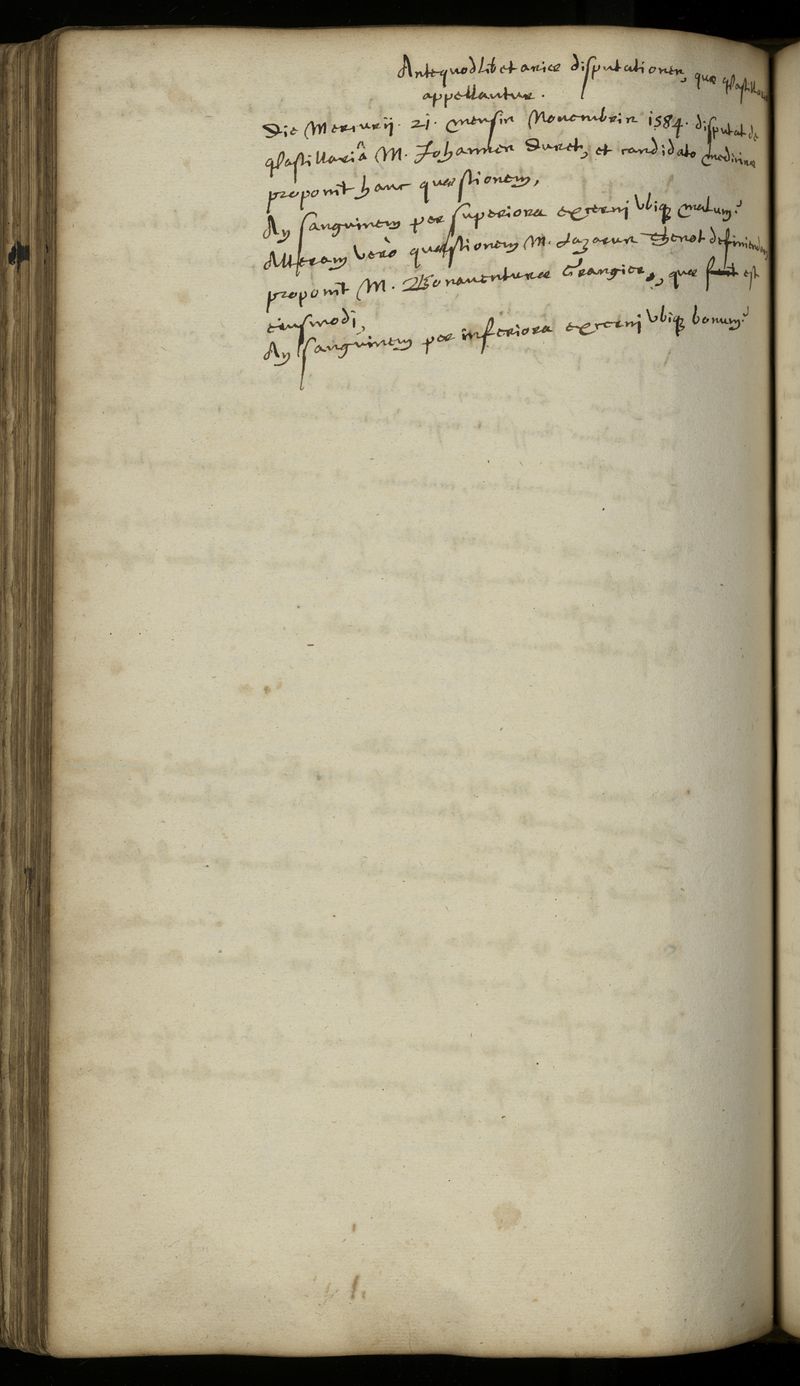 Antequodlibetariæ disputationes, quæ pastillariæ
appellantur.
Die Mercurij. 21. mensis Nouembris 1584. disputat de
pastillariâ M. Johannes Duret, et candidato medicinæ
proponit hanc quæstionem,
An sanguinem per superiora excerni vbiq malum?
Alteram verò quæstionem M. Lazarus Thenot definiendam
proponit M. Bonauenturæ Grangier, quæ fuit est
eiusmodi,
An sanguinem per inferiora excerni vbiq bonum?